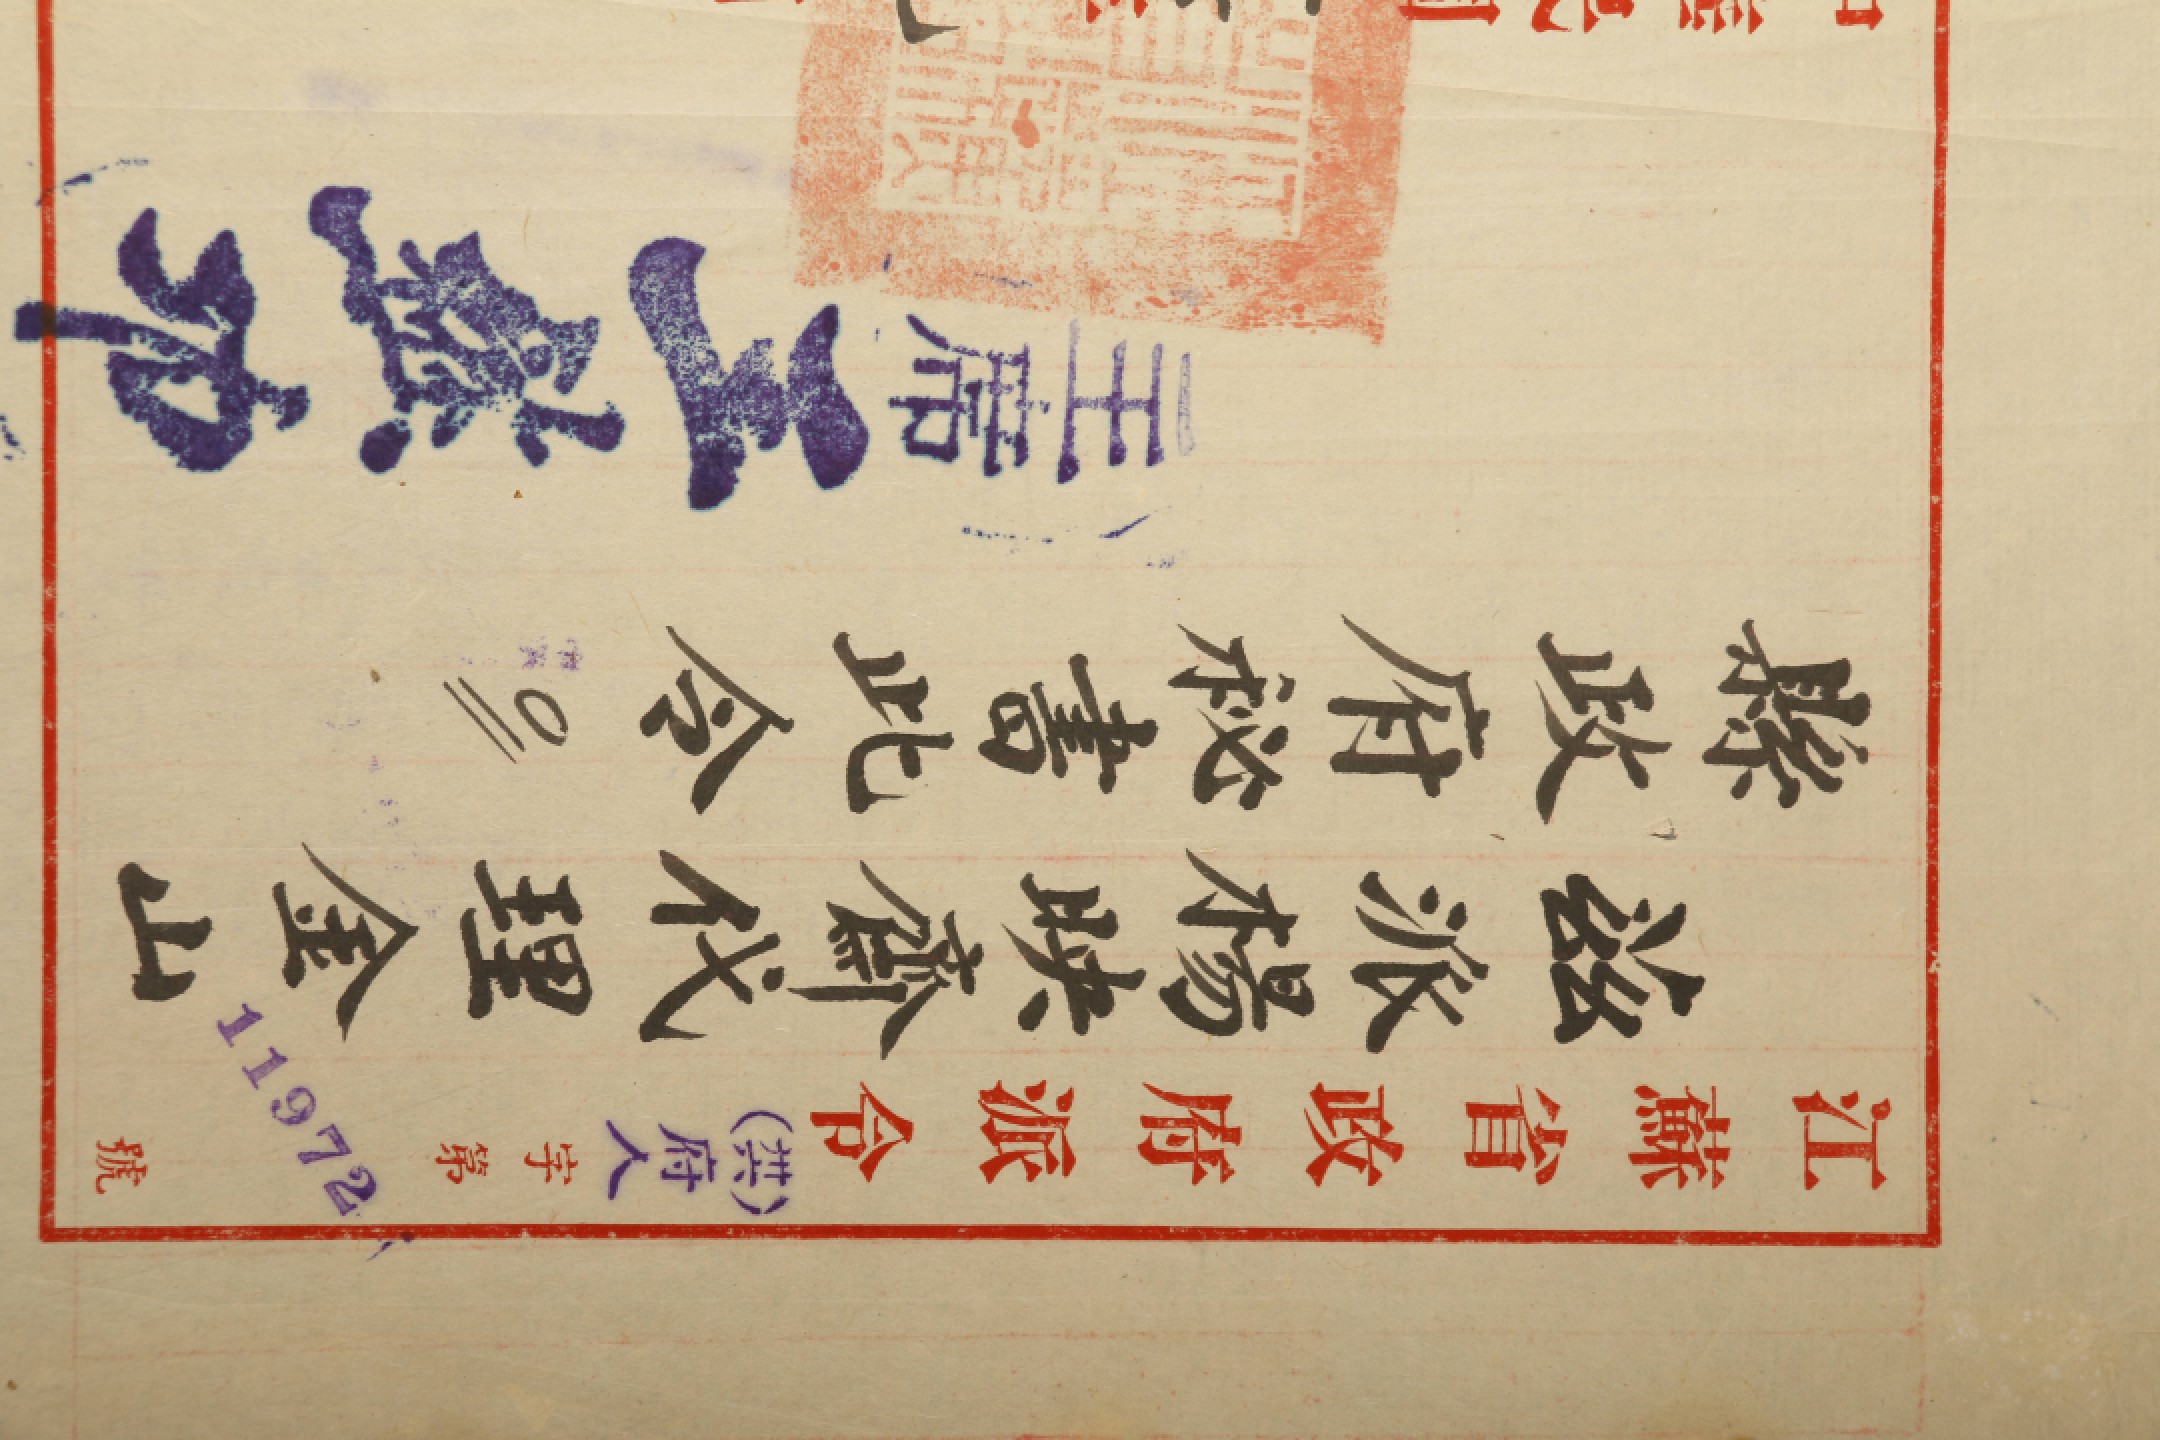 江蘇省政府派令(洪)府人字第11972號
茲派楊映齋代理金山
縣政府秘書此令
主席王懋功